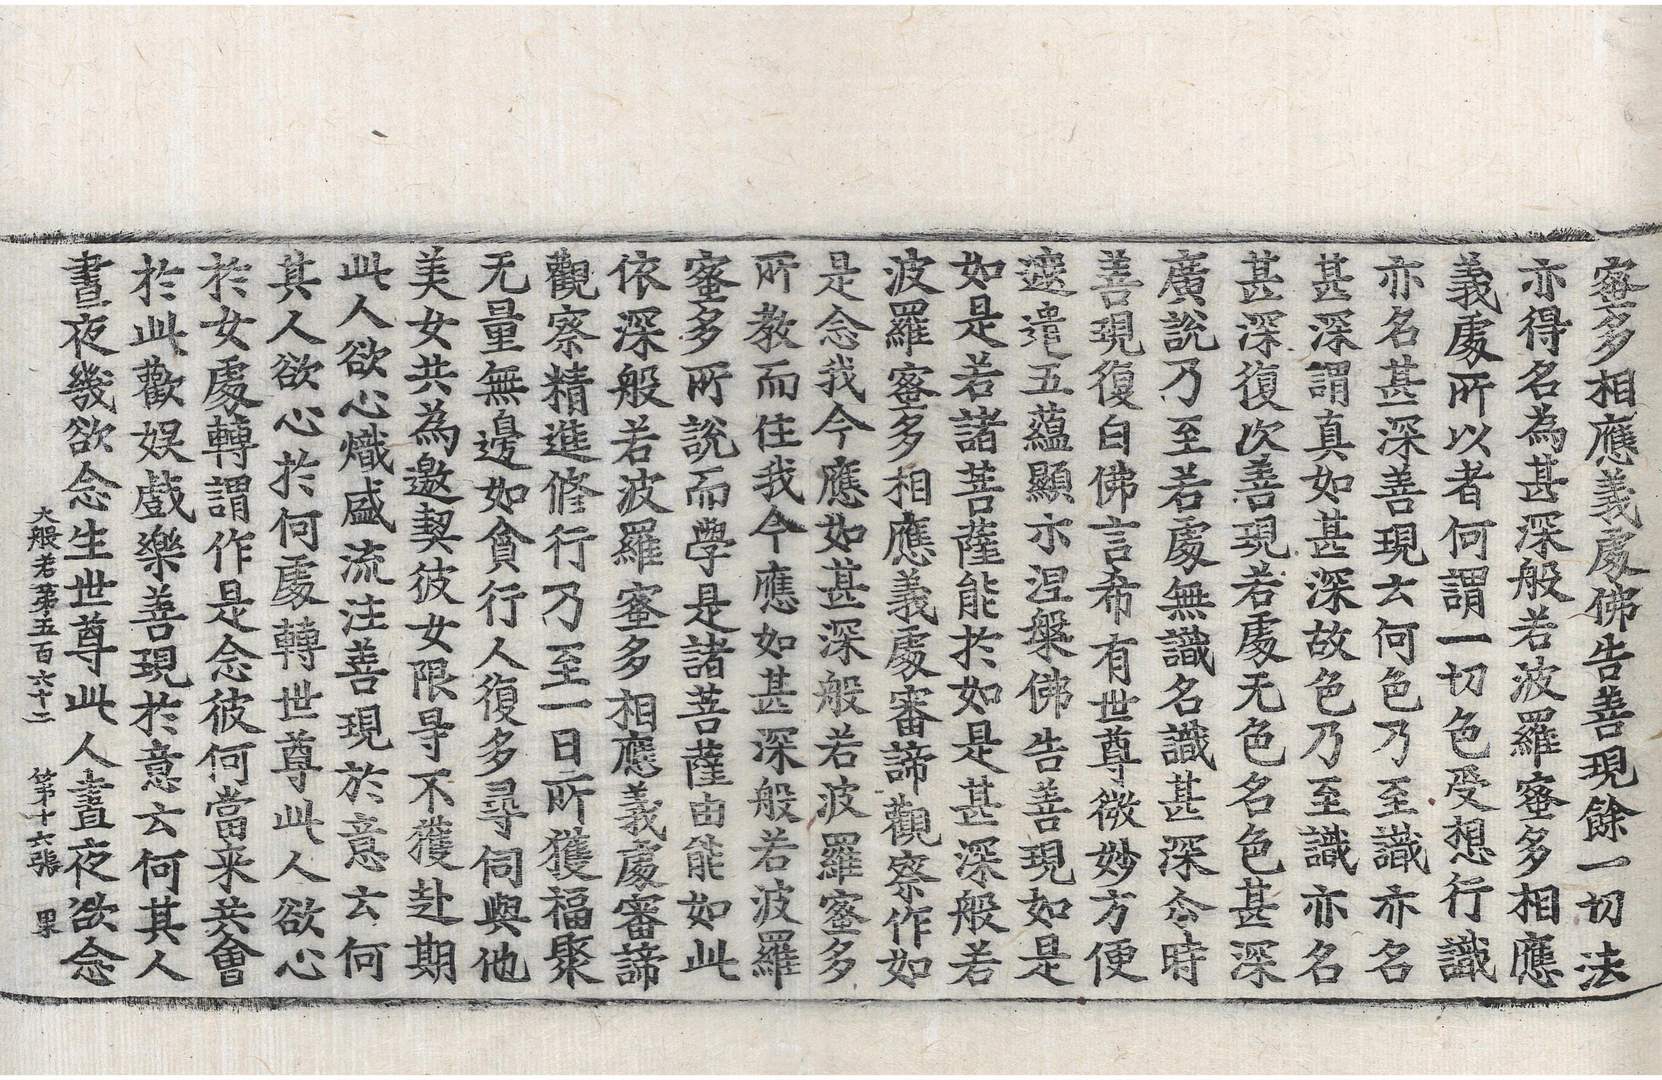 蜜多相應義處佛告善現餘一切法
亦得名為甚深般若波羅蜜多相應
義處所以者何謂一切色受想行識
亦名甚深善現云何色乃至識亦名
甚深謂真如甚深故色乃至識亦名
甚深復次善現若處无色名色甚深
廣說乃至若處無識名識甚深尒時
善現復白佛言希有世尊微妙方便
遮遣五蘊顯示涅槃佛告善現如是
如是若諸菩薩能於如是甚深般若
波羅蜜多相應義處審諦觀察作如
是念我今應如甚深般若波羅蜜多
所教而住我今應如甚深般若波羅
蜜多所說而學是諸菩薩由能如此
依深般若波羅蜜多相應義處審諦
觀察精進修行乃至一日所獲福聚
无量無邊如貪行人復多尋伺與他
美女共為邀契彼女限㝵不獲赴期
此人欲心熾盛流注善現於意云何
其人欲心於何處轉世尊此人欲心
於女處轉謂作是念彼何當来共會
於此歡娛戲樂善現於意云何其人
晝夜幾欲念生世尊此人晝夜欲念
大般若第五百六十二 第十六張 果